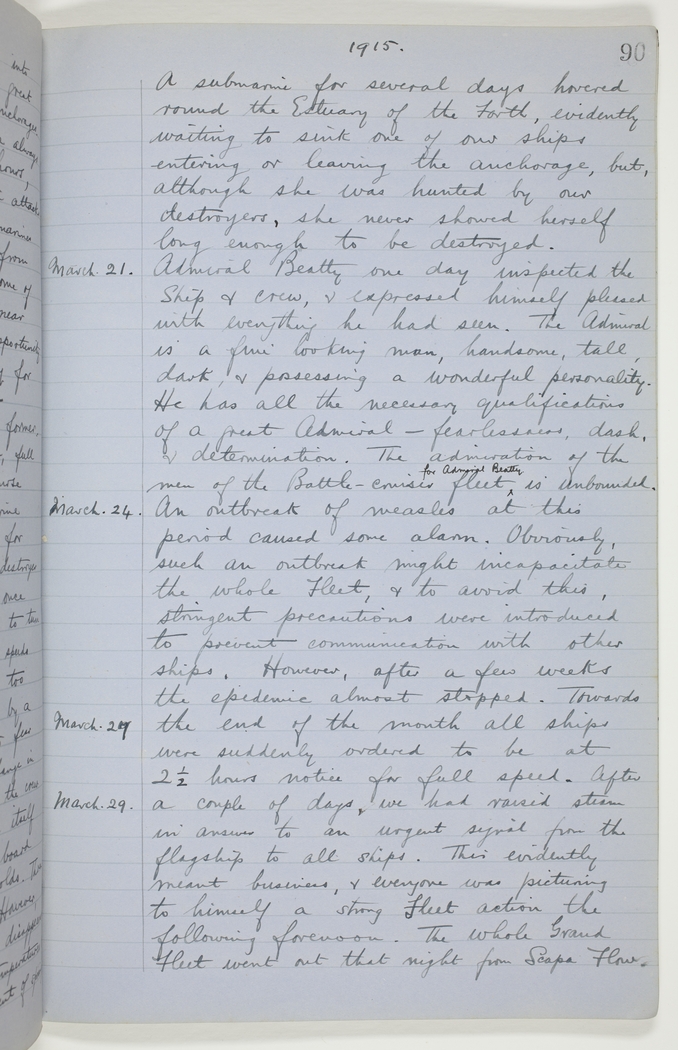 1915.
90
A submarine for several days hovered
round the Estuary of the Forth, evidently
waiting to sink one of our ships
entering or leaving the anchorage, but,
although she was hunted by our
destroyers, she never showed herself
long enough to be destroyed.
March. 21. Admiral Beatty one day inspected the
Ship & crew, & expressed himself pleased
with everything he had seen. The Admiral
is a fine looking man, handsome, tall,
dark, & possessing a wonderful personality.
He has all the necessary qualifications
of a great Admiral — fearlessness, dash,
& determination. The admiration of the
for Admiral Beatty
men of the Battle-cruiser fleet ^ is unbounded.
March. 24. An outbreak of measles at this
period caused some alarm. Obviously,
such an outbreak might incapacitate
the whole Fleet, & to avoid this,
stringent precautions were introduced
to prevent communication with other
ships. However, after a few weeks
the epidemic almost stopped. Towards
March. 27 the end of the month all ships
were suddenly ordered to be at
2½ hours notice for full speed. After
March. 29. a couple of days, we had raised steam
in answer to an urgent signal from the
flagship to all ships. This evidently
meant business, & everyone was picturing
to himself a strong Fleet action the
following forenoon. The whole Grand
Fleet went out that night from Scapa Flow.
into
great
anchorage
always
hours,
attack
from
some of
near
opportunity
for
former,
full
for
destroyer
once
to
speeds
too
by a
few
in
the
itself
board
However,
disappear
temperature